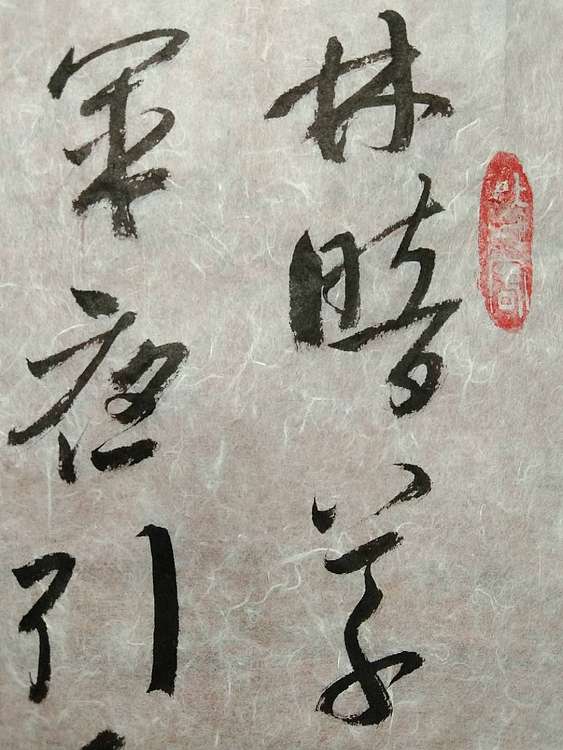 林暗草
軍夜引